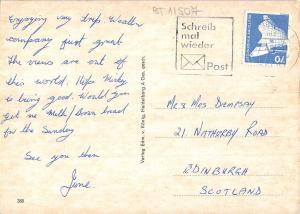 Enjoying my trip. Weather
company just great
The views are out of
this world. Hope Kirsty
is being good. Would you
get me Milk / Brown bread
for the Sunday
See you then
June.
388
Verlag Edm. v. König, Heidelberg
BT 11504
Schreib
mal
wieder
Post
70
Mr & Mrs Dempsay
21, Road
EDINBURGH
SCOTLAND